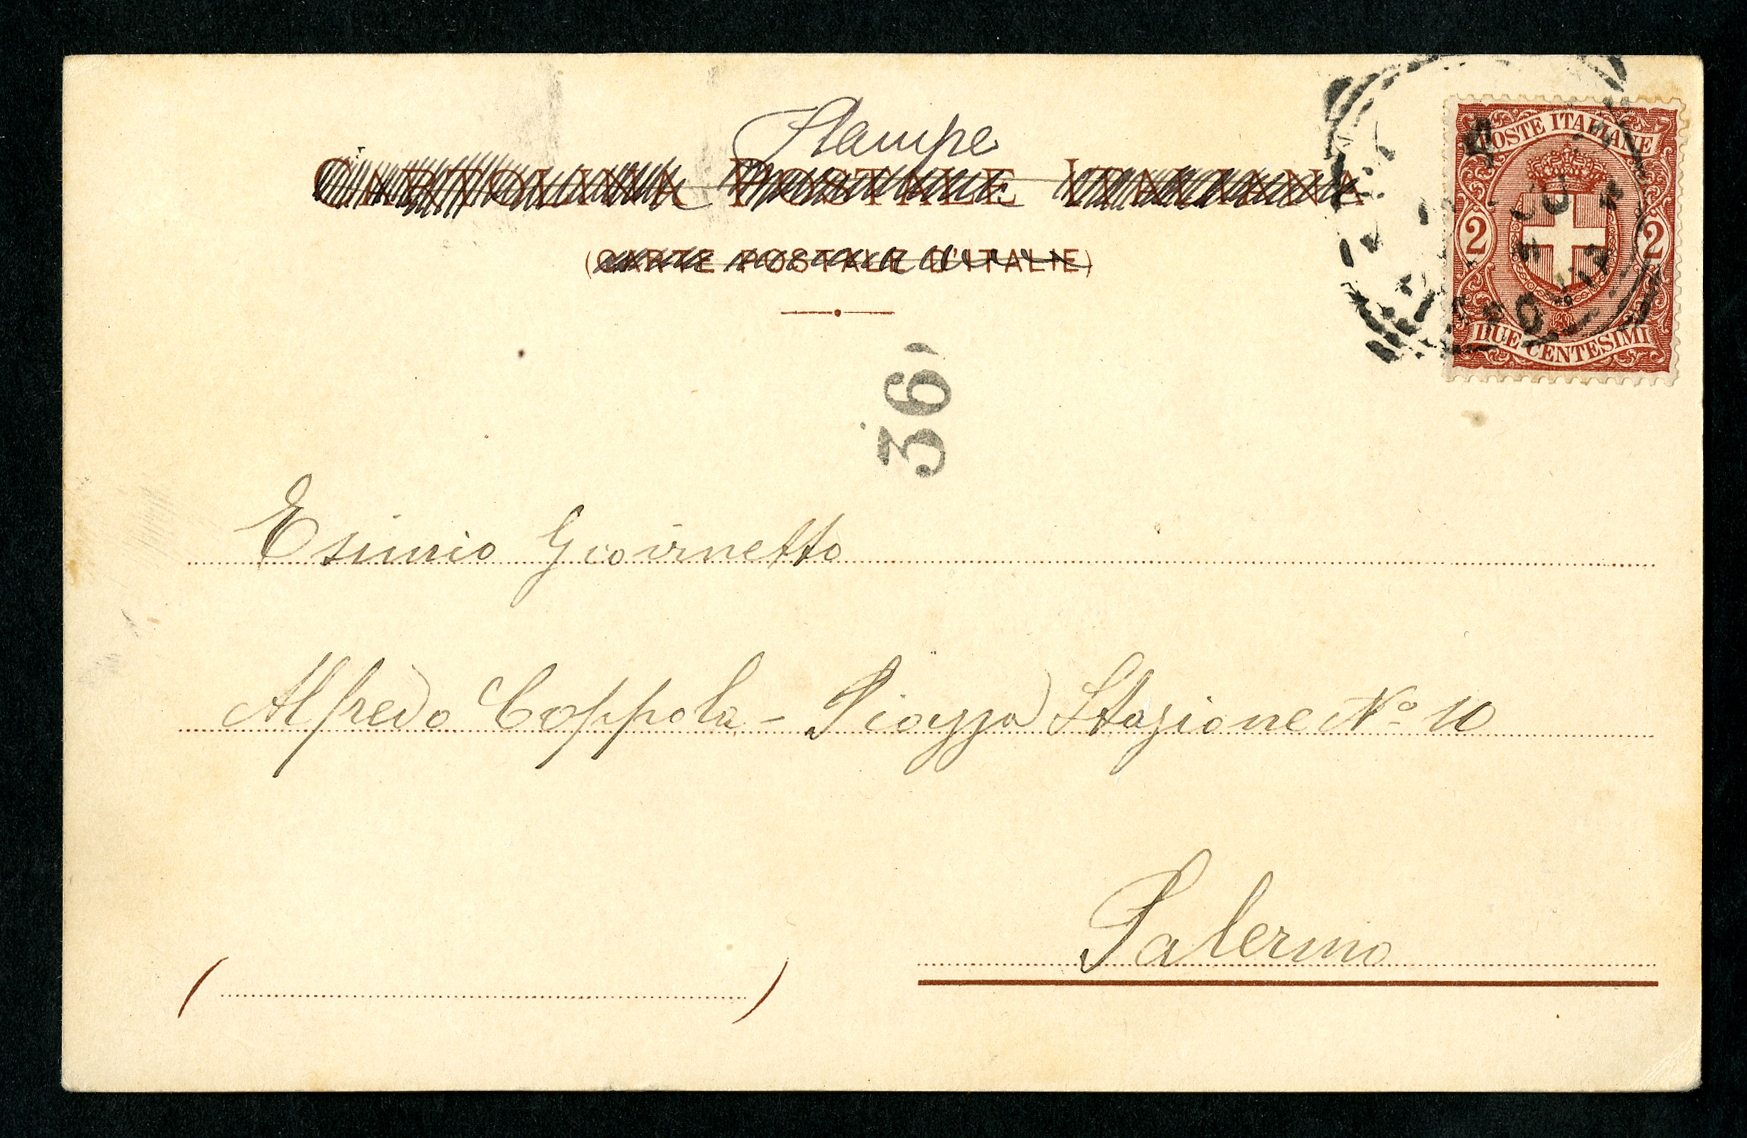 Stampe
CARTOLINA POSTALE ITALIANA
(CARTE POSTALE D'ITALIE)
POSTE ITALIANE
2 2
DUE CENTESIMI
36
Esimio Giovinetto
Alfredo Coppola - Piazza Stazione No 10
Palermo
( )